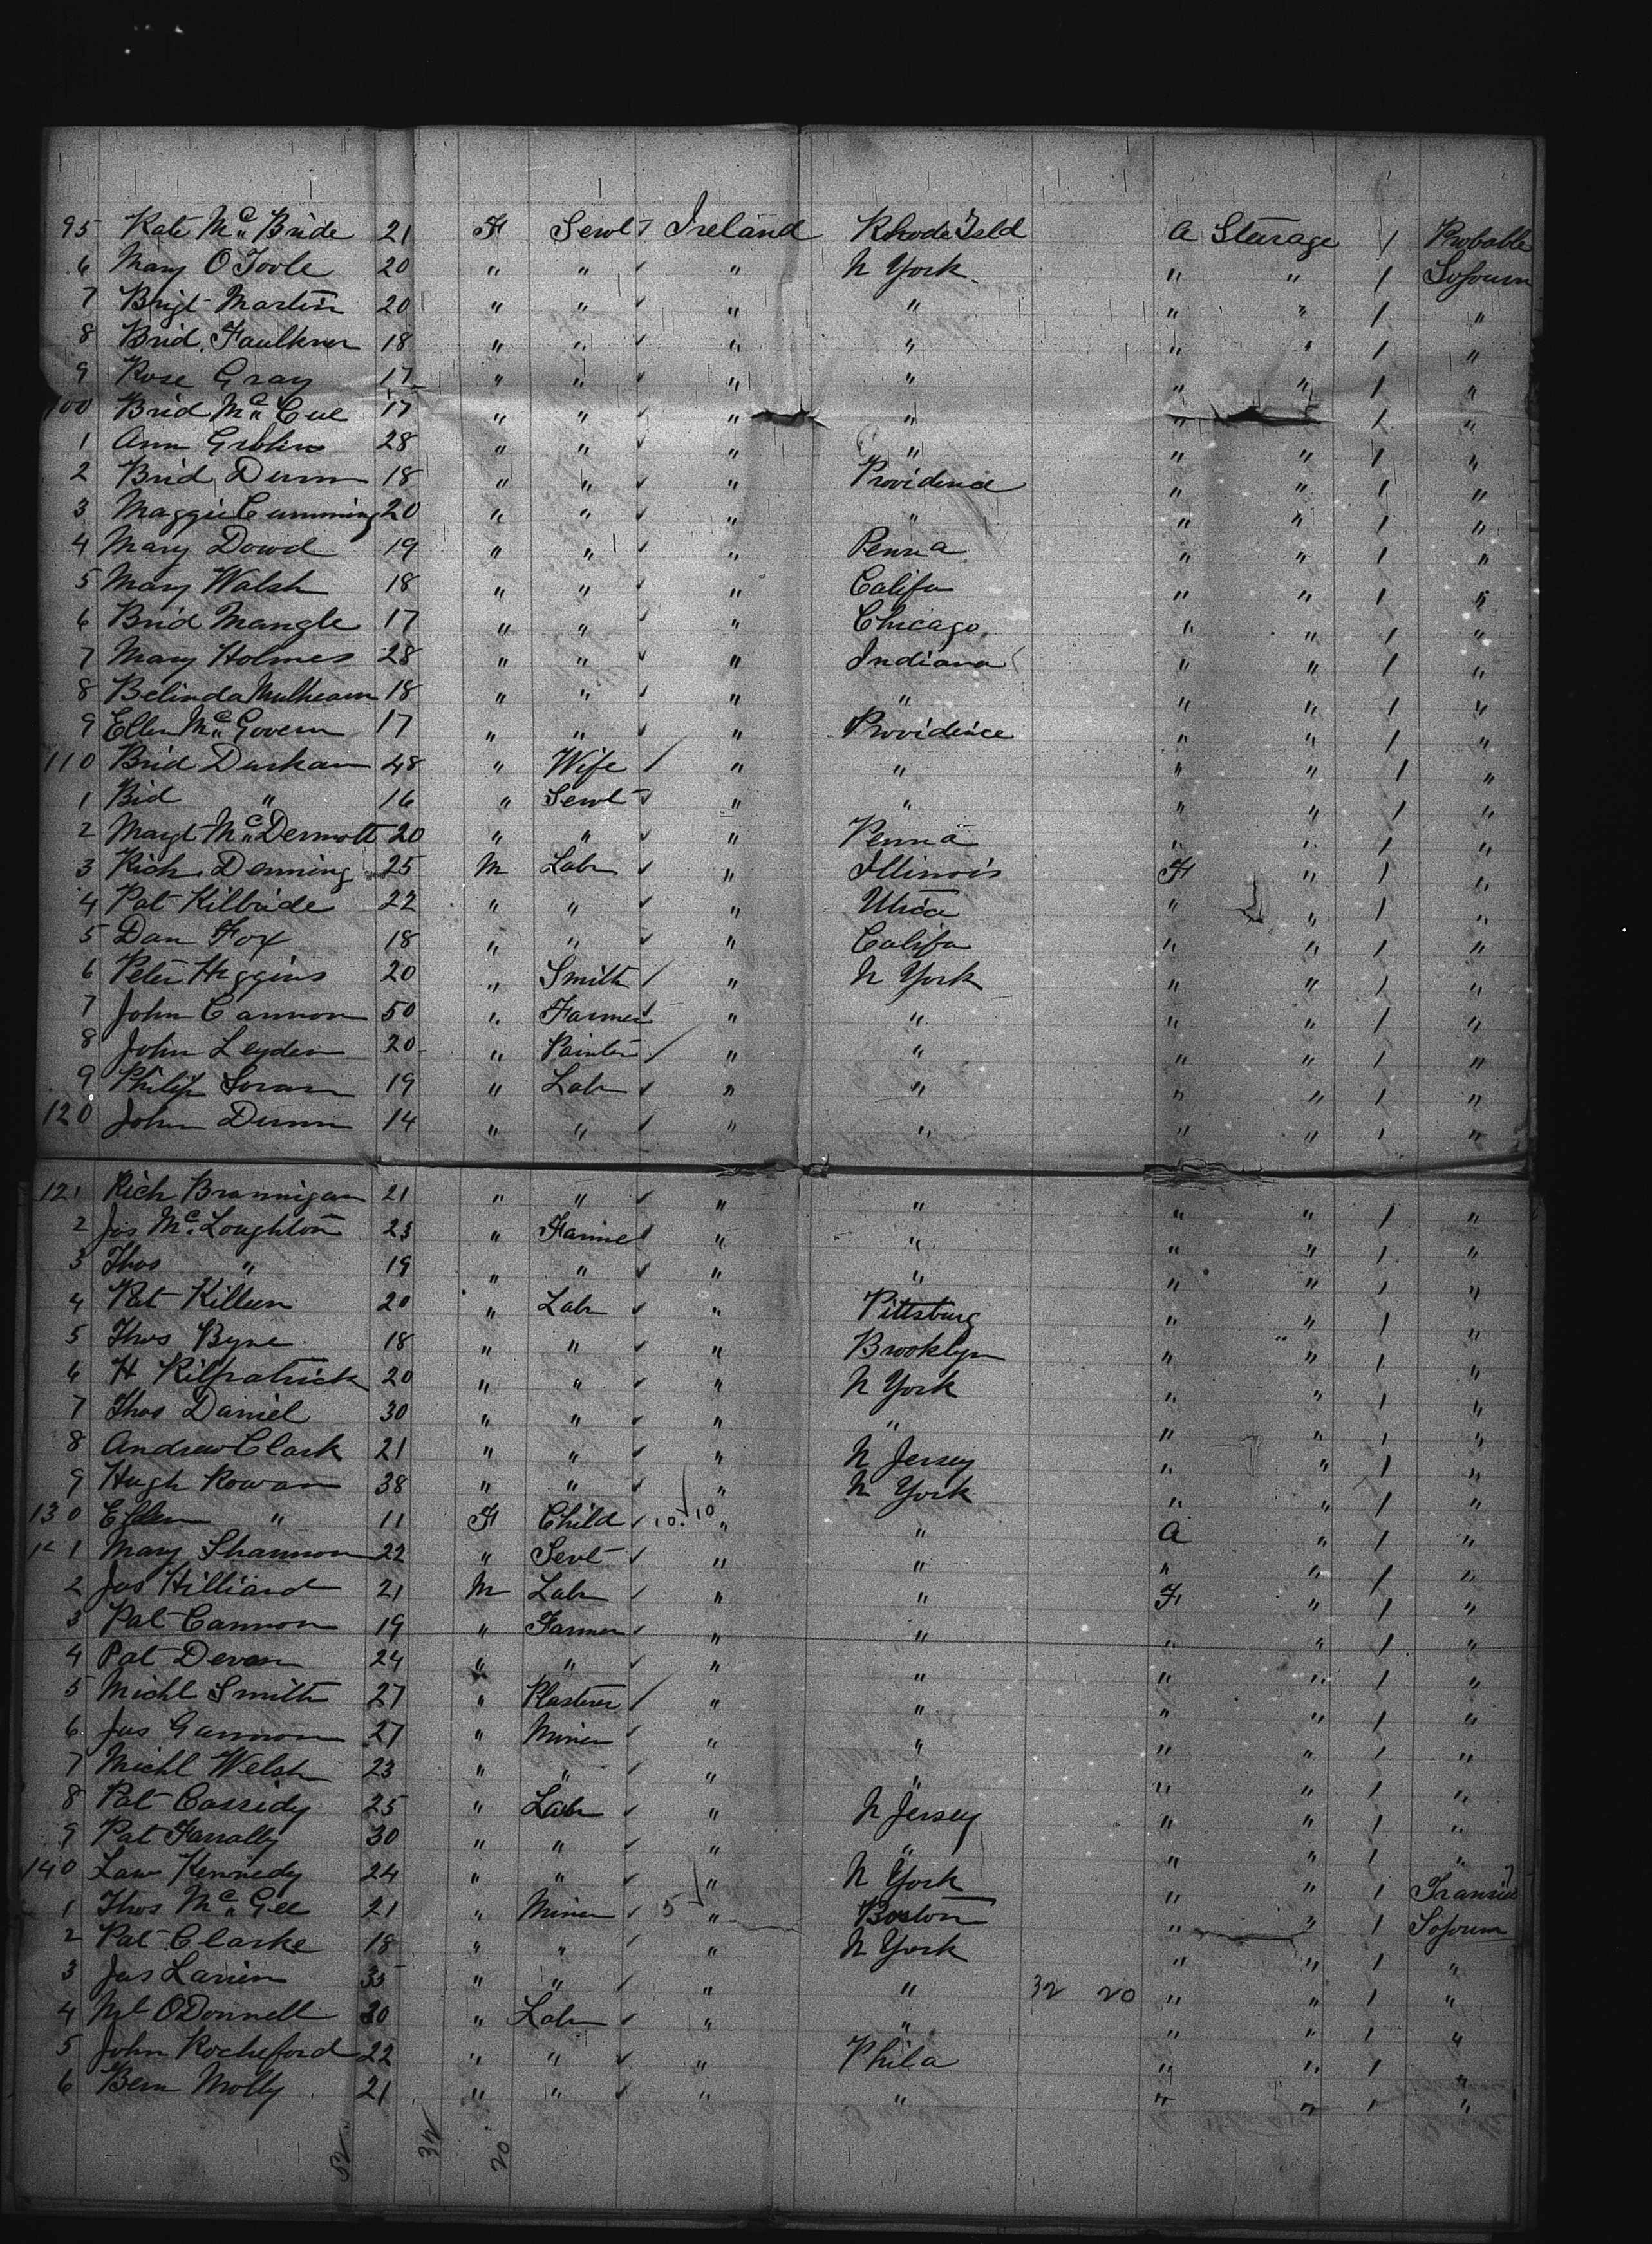 95 Kate Mc Bride 21 F Servt Ireland Rhode Isld A Sterage / Probable
6 Mary O Toole 20 " " " N York " " / Sojourn
7 Brigt Martin 20 " " " " " " / "
8 Brid. Faulkner 18 " " " " " " / "
9 Rose Gray 17 " " " " " " / "
100 Brid Mc Cue 17 " " " " " " / "
1 Ann 28 " " " " " " / "
2 Brid Dunn 18 " " " Providence " " / "
3 Maggie Cumming 20 " " " " " " / "
4 Mary Dowd 19 " " " Penna " " / "
5 Mary Walsh 18 " " " Califa " " / "
6 Brid Mangle 17 " " " Chicago " " / "
7 Mary Holmes 28 " " " Indiana " " / "
8 Belinda Mulhearn 18 " " " " " " / "
9 Ellen Mc Govern 17 " " " Providence " " / "
110 Brid Durkan 48 " Wife " " " " / "
1 Bid " 16 " Servt " " " " / "
2 Margt Mc Dermott 20 " " " Penna " " / "
3 Rich Denning 25 M Labr " Illinois F " / "
4 Pat Kilbride 22 " " " Utica " " / "
5 Dan Fox 18 " " " Califa " " / "
6 Peter Higgins 20 " Smith " N York " " / "
7 John Cannon 50 " Farmer " " " " / "
8 John Leyden 20 " Painter " " " " / "
9 Philip Soran 19 " Labr " " " " / "
120 John Dunn 14 " " " " " " / "
121 Rich Brannigan 21 " " " " " " / "
2 Jas Mc Loughton 23 " Farmer " " " " / "
3 Thos " 19 " " " " " " / "
4 Pat Killeen 20 " Labr " Pittsburg " " / "
5 Thos Byne 18 " " " Brooklyn " " / "
6 H Kilpatrick 20 " " " N York " " / "
7 Thos Daniel 30 " " " " " " / "
8 Andrew Clark 21 " " " N Jersey " " / "
9 Hugh Rowan 38 " " " N York " " / "
130 Ellen " 11 F Child 10.10 " " A " / "
1 Mary Shannon 22 " Sevt " " " " / "
2 Jas Hilliard 21 M Labr " " F " / "
3 Pat Cannon 19 " Farmer " " " " / "
4 Pat Devan 24 " " " " " " / "
5 Michl Smith 27 " Plasterer " " " " / "
6 Jas Gannon 27 " Miner " " " " / "
7 Michl Welsh 23 " " " " " " / "
8 Pat Cassidy 25 " Labr " N Jersey " " / "
9 Pat Farrally 30 " " " " " " / "
140 Law Kennedy 24 " " " N York " " / Transit
1 Thos Mc Gee 21 " Miner 5 " Boston " " / Sojourn
2 Pat Clarke 18 " " " N York " " / "
3 Jas Larien 35 " " " " 32 20 " " / "
4 Ml O Donnell 30 " Labr " " " " / "
5 John Rocheford 22 " " " Phila " " / "
6 Bern Molly 21 " " " " " " / "
52 32 20